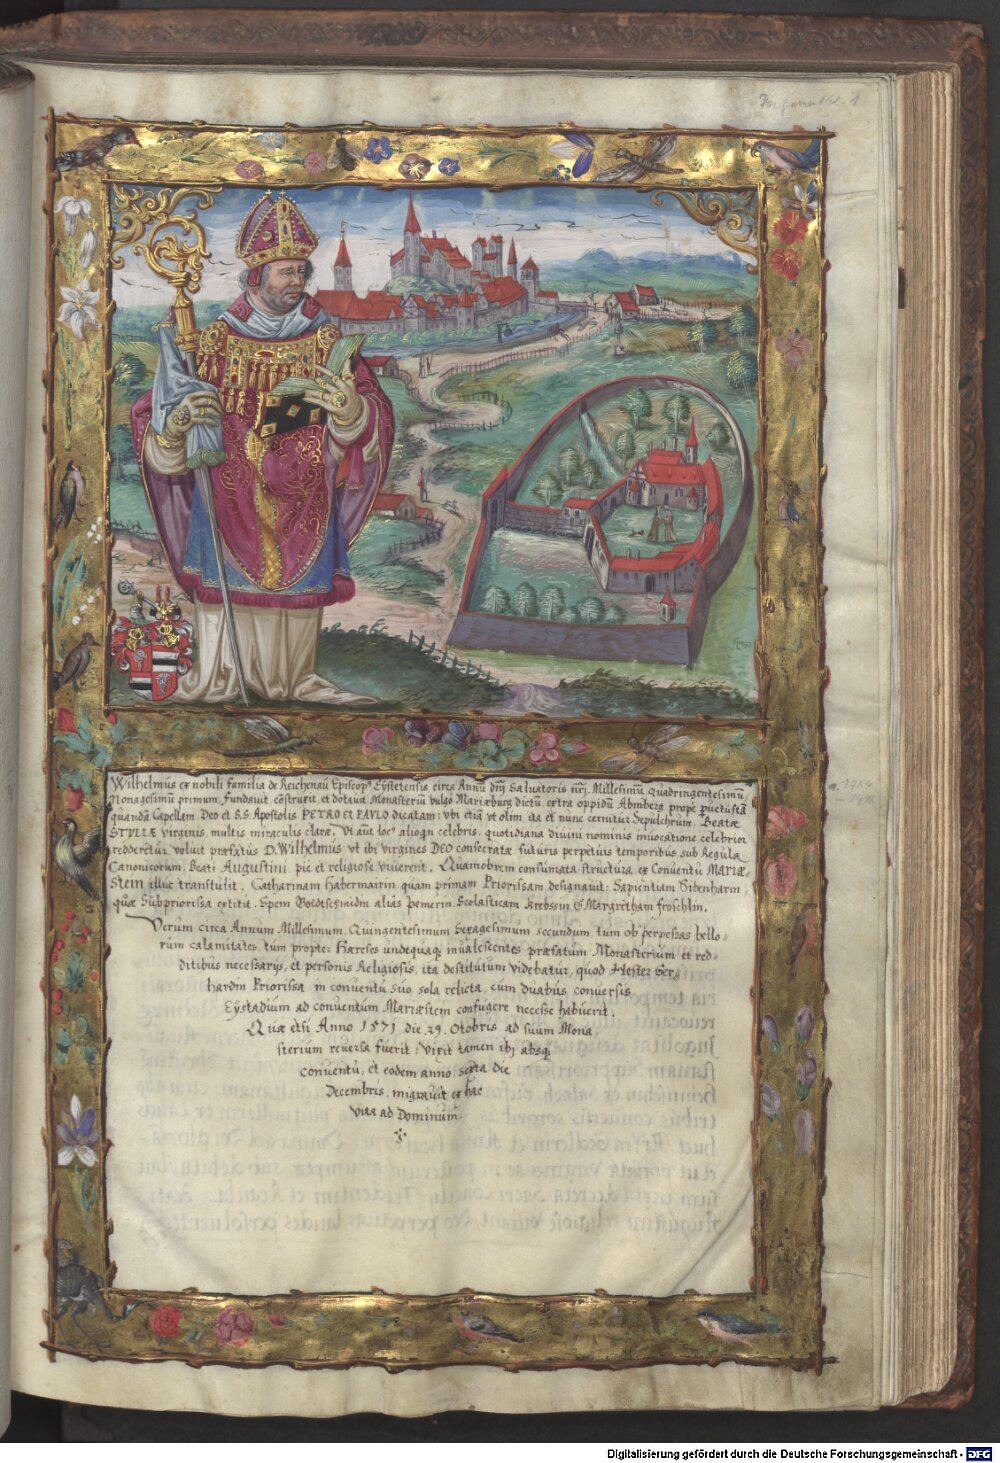 Pergamentbl. 1
Wilhelmus ex nobili familia de Reichenau Episcop9 Eystetensis circa Annū dn̄j Salvatoris nrj. Millesimū Quadringentesimū
Nonagesimū primum, fundavit, cōstruxit, et dotavit Monasteriū vulgo Mariæburg dictū, extra oppidū Abmberg prope vetustā
quandā Capellam Deo et S.S. Apostolis PETRO et PAVLO dicatam: vbi etiā vt olim ita et nunc cernitur Sepulchrum Beatæ
STYLLÆ virginis, multis miraculis claræ. Vt aūt loc9 alioqui celebris, quotidiana divini nominis invocatione celebrior
redderetur, voluit præfatus D. Wilhelmus vt ibi virgines DEO consecratæ futuris perpetuis temporibus sub Regula
Canonicorum Beati Augustini piè et religiosè viverent. Quamobrem consumata structura ex Conventu MARIÆ
Stein illuc transtulit. Catharinam Habermairin quam primam Priorissam designavit: Sapientiam Sibenharin,
quæ Subpriorissa extitit. Spem Goldtschmidin aliàs Pemerin. Scolasticam Krebssin & Margretham froschlin.
Verum circa Annum Millesimum Quingentesimum Sexagesimum secundum tum ob perpessas bello-
rum calamitates, tum propter Hæreses undequaq; invalescentes præfatum Monasterium et red-
ditibus necessarijs, et personis Religiosis, ita destitutum videbatur, quod Hester Ger-
hardin Priorissa in conventu suo sola relicta, cum duabus conversis
Eystadium ad conventum Mariæstein confugere necesse habuerit.
Quæ etsi Anno 1571 die 29. Otobris ad suum Mona
sterium reversa fuerit: Vixit tamen ibj absq;
conventu, et eodem anno, sexta die
Decembris, migravit ex hac
Vita ad Dominum.
a. 1464
- 1496
Digitalisierung gefördert durch die Deutsche Forschungsgemeinschaft - DFG